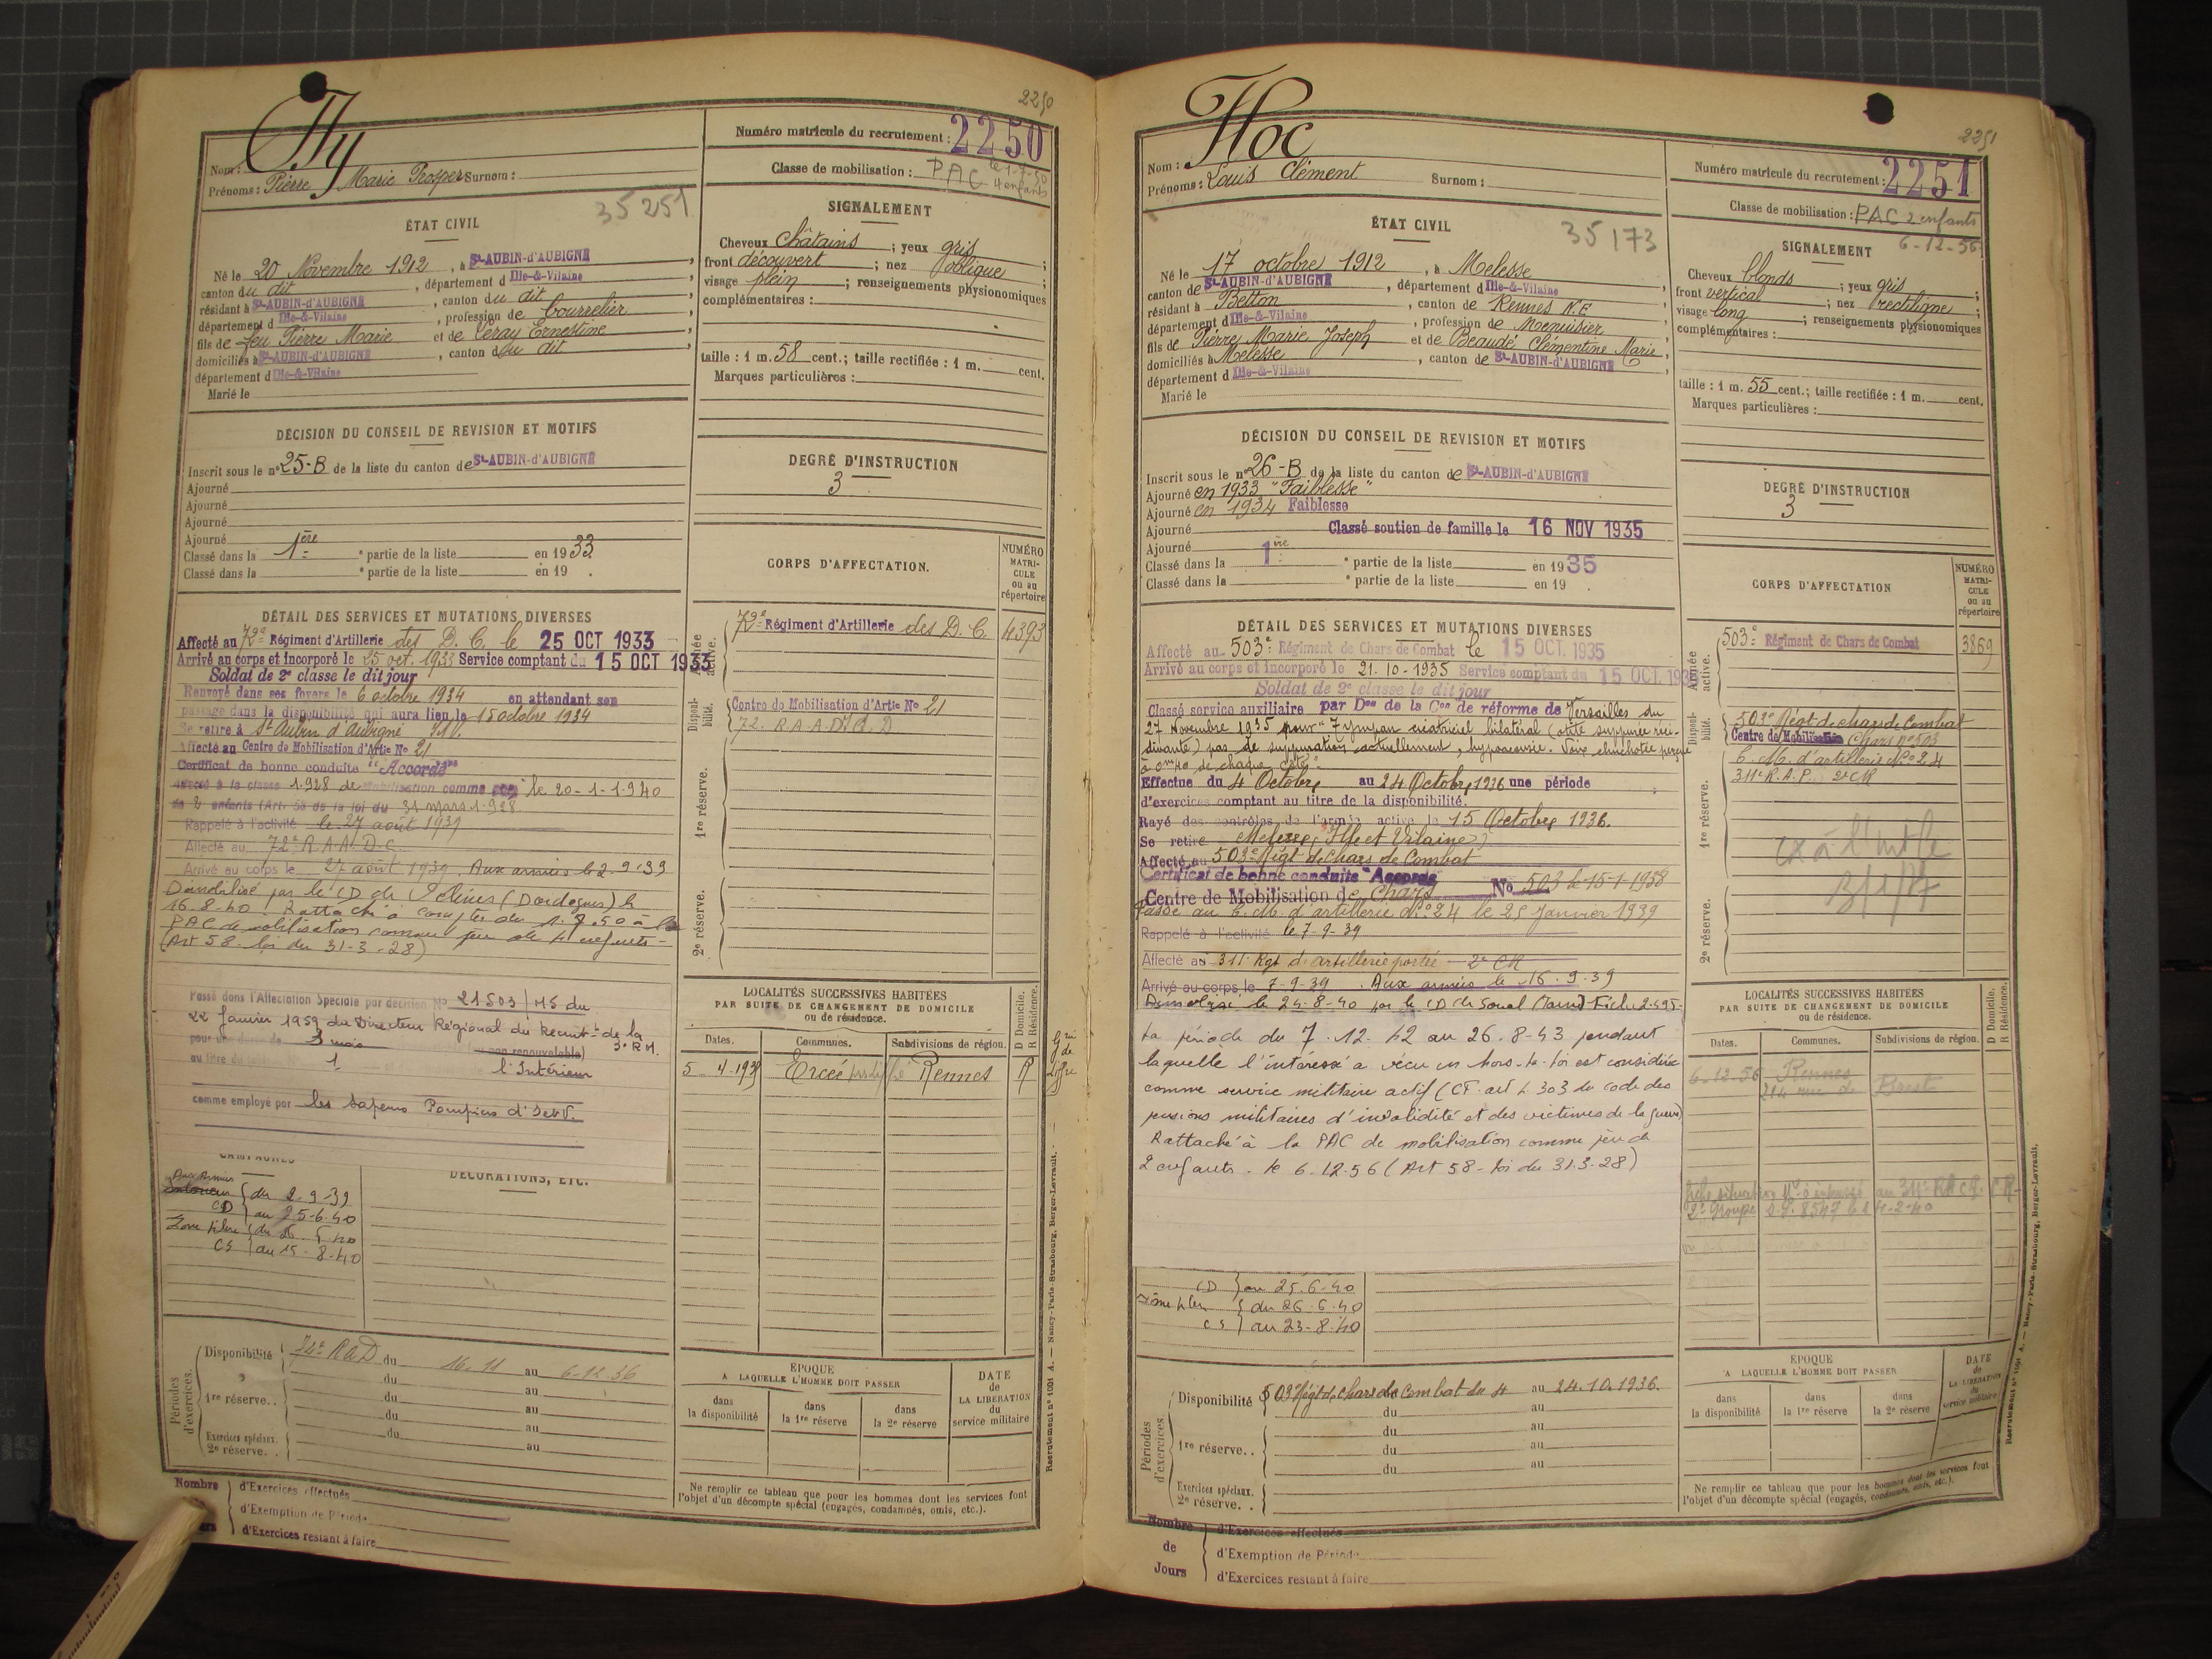 2250
Hy
Nom :
Prénoms : Pierre Marie Prosper Surnom :
Numéro matricule du recrutement : 2250
Classe de mobilisation : PAC le 1-7-50
4 enfants
35251
ÉTAT CIVIL
Né le 20 Novembre 1912, à St-AUBIN-d'AUBIGNÉ,
canton du dit, département d Ille-&-Vilaine,
résidant à St-AUBIN-d'AUBIGNÉ, canton du dit,
département d Ille-&-Vilaine, profession de bourrelier
fils de feu Pierre Marie et de Veray Ernestine,
domiciliés à St-AUBIN-d'AUBIGNÉ, canton du dit,
département d Ille-&-Vilaine
Marié le
SIGNALEMENT
Cheveux châtains ; yeux gris ;
front découvert ; nez oblique ;
visage plein ; renseignements physionomiques
complémentaires :
taille : 1 m. 58 cent. ; taille rectifiée : 1 m. cent.
Marques particulières :
DÉCISION DU CONSEIL DE REVISION ET MOTIFS
Inscrit sous le n° 25-B de la liste du canton de St-AUBIN-d'AUBIGNÉ
Ajourné
Ajourné
Ajourné
Ajourné
Classé dans la 1ère partie de la liste en 1933
Classé dans la e partie de la liste en 19 .
DEGRÉ D'INSTRUCTION
3
CORPS D'AFFECTATION.
NUMÉRO MATRICULE ou au répertoire
DÉTAIL DES SERVICES ET MUTATIONS DIVERSES
Affecté au 72e Régiment d'Artillerie des D. C. le 25 OCT 1933
Arrivé au corps et incorporé le 25 oct. 1933 Service comptant du 15 OCT 1933
Soldat de 2e classe le dit jour
Renvoyé dans ses foyers le 6 octobre 1934 en attendant son
passage dans la disponibilité qui aura lieu le 15 octobre 1934
Se retire à St Aubin d'Aubigné I.&V.
Affecté au Centre de Mobilisation d'Artie No 21
Certificat de bonne conduite "Accordé"
classe 1.928 de mobilisation comme père le 20-1-1940
de 2 enfants (Art. 58 de la loi du 31 mars 1.928
Rappelé à l'activité le 27 août 1939
Affecté au 72e R.A.A.D.C.
Arrivé au corps le 27 août 1939. Aux armées le 2.9.39
Démobilisé par le CD de (Dordogne) le
16.8.40 - Rattaché à compter du 1.7.50 à la
PAC de mobilisation comme père de 4 enfants -
(Art 58 loi du 31-3-28)
Passé dans l'Affectation Spéciale par décision No 21503/MS du
22 Janvier 1959 du Directeur Régional du Recrutt de la
3e RM.
pour une durée de 3 mois (ou non renouvelable)
au titre du 1. l'Intérieur
comme employé par les Sapeurs Pompiers d'I&V.
Armée active.
72e Régiment d'Artillerie des D. C. 4393
Disponibilité.
Centre de Mobilisation d'Artie No 21
72. R.A.A.D.
1re réserve.
2e réserve.
LOCALITÉS SUCCESSIVES HABITÉES
PAR SUITE DE CHANGEMENT DE DOMICILE
ou de résidence.
D Domicile. R Résidence.
Dates. Communes. Subdivisions de région.
5-4-1939 Ercée près Liffré Rennes R
CAMPAGNES
DÉCORATIONS, ETC.
Aux Armées
CD du 2-9-39
au 25-6-40
Zone libre
CS au 15-8-40
Périodes d'exercices.
Disponibilité 72e RAD du 16.11 au 6-12-36
du au
1re réserve. . du au
du au
du au
Exercices spéciaux.
2e réserve. . au
ÉPOQUE
A LAQUELLE L'HOMME DOIT PASSER
dans la disponibilité
dans la 1re réserve
dans la 2e réserve
DATE de LA LIBÉRATION du service militaire
Ne remplir ce tableau que pour les hommes dont les services font
l'objet d'un décompte spécial (engagés, condamnés, omis, etc.).
Nombre
d'Exercices effectués
d'Exemption de Période
d'Exercices restant à faire
Recrutement n° 1091 A. — Nancy-Paris-Strasbourg, Berger-Levrault.
2251
Hoc
Nom :
Prénoms : Louis Clément Surnom :
Numéro matricule du recrutement : 2251
Classe de mobilisation : PAC 2 enfants
6-12-56
35173
ÉTAT CIVIL
Né le 17 octobre 1912, à Melesse
canton de St-AUBIN-d'AUBIGNÉ, département d Ille-&-Vilaine,
résidant à Betton, canton de Rennes N.E
département d Ille-&-Vilaine, profession de Menuisier
fils de Pierre Marie Joseph et de Beaudé Clémentine Marie,
domiciliés à Melesse, canton de St-AUBIN-d'AUBIGNÉ,
département d Ille-&-Vilaine
Marié le
SIGNALEMENT
Cheveux blonds ; yeux gris ;
front vertical ; nez rectiligne ;
visage long ; renseignements physionomiques
complémentaires :
taille : 1 m. 55 cent. ; taille rectifiée : 1 m. cent.
Marques particulières :
DÉCISION DU CONSEIL DE REVISION ET MOTIFS
Inscrit sous le n° 26-B de la liste du canton de St-AUBIN-d'AUBIGNÉ
Ajourné en 1933 "Faiblesse"
Ajourné en 1934 Faiblesse
Ajourné Classé soutien de famille le 16 NOV 1935
Ajourné
Classé dans la 1ère partie de la liste en 1935
Classé dans la e partie de la liste en 19 .
DEGRÉ D'INSTRUCTION
3
CORPS D'AFFECTATION
NUMÉRO MATRICULE ou au répertoire
DÉTAIL DES SERVICES ET MUTATIONS DIVERSES
Affecté au 503e Régiment de Chars de Combat le 15 OCT. 1935
Arrivé au corps et incorporé le 21-10-1935 Service comptant du 15 OCT. 1935
Soldat de 2e classe le dit jour
Classé service auxiliaire par Don de la Con de réforme de Versailles du
27 Novembre 1935 pour "Tympan cicatriciel bilatéral (otite suppurée réci-
divante) pas de suppuration actuellement, hypoacousie. Voix chuchotée perçue
à 0m40 de chaque côté"
Effectue du 4 Octobre au 24 Octobre 1936 une période
d'exercices comptant au titre de la disponibilité.
Rayé des contrôles de l'armée active le 15 Octobre 1936.
Se retire Melesse, (Ille et Vilaine)
Affecté au 503e Régt de Chars de Combat
Certificat de bonne conduite "Accordé"
Centre de Mobilisation de Chars No 503 le 15-1-1938
Passé au C.M. d'artillerie No 24 le 25 Janvier 1939
Rappelé à l'activité le 7-9-39
Affecté au 311e Rgt d'artillerie portée - 2e CR
Arrivé au corps le 7-9-39. Aux armées le 16.9.39
Démobilisé le 24-8-40 par le CD de Soual (Tarn) Fiche 2495-
La période du 7.12.42 au 26.8-43 pendant
laquelle l'intéressé a vécu en hors-la-loi est considérée
comme service militaire actif (CF. art L 303 du code des
pensions militaires d'invalidité et des victimes de la guerre)
Rattaché à la PAC de mobilisation comme père de
2 enfants. le 6-12-56 (Art 58 - loi du 31-3-28)
Armée active.
503e Régiment de Chars de Combat 3869
Disponibilité.
503e Régt de chars de Combat
Centre de Mobilisation Chars no 503
1re réserve.
C.M. d'artillerie No 24
311e R.A.P. 2e CR
2e réserve.
LOCALITÉS SUCCESSIVES HABITÉES
PAR SUITE DE CHANGEMENT DE DOMICILE
ou de résidence.
D Domicile. R Résidence.
Dates. Communes. Subdivisions de région.
6-12-56 Rennes
214 rue de Brest
CD au 25.6.40
Zone libre du 26.6.40
CS au 23-8-40
Périodes d'exercices.
Disponibilité 503e Régt de chars de Combat du 4 au 24.10.1936.
du au
1re réserve. . du au
du au
du au
Exercices spéciaux.
2e réserve. .
ÉPOQUE
A LAQUELLE L'HOMME DOIT PASSER
dans la disponibilité
dans la 1re réserve
dans la 2e réserve
DATE de LA LIBÉRATION du service militaire
Ne remplir ce tableau que pour les hommes dont les services font
l'objet d'un décompte spécial (engagés, condamnés, omis, etc.).
Nombre de Jours
d'Exercices effectués
d'Exemption de Période
d'Exercices restant à faire
Recrutement n° 1091 A. — Nancy-Paris-Strasbourg, Berger-Levrault.